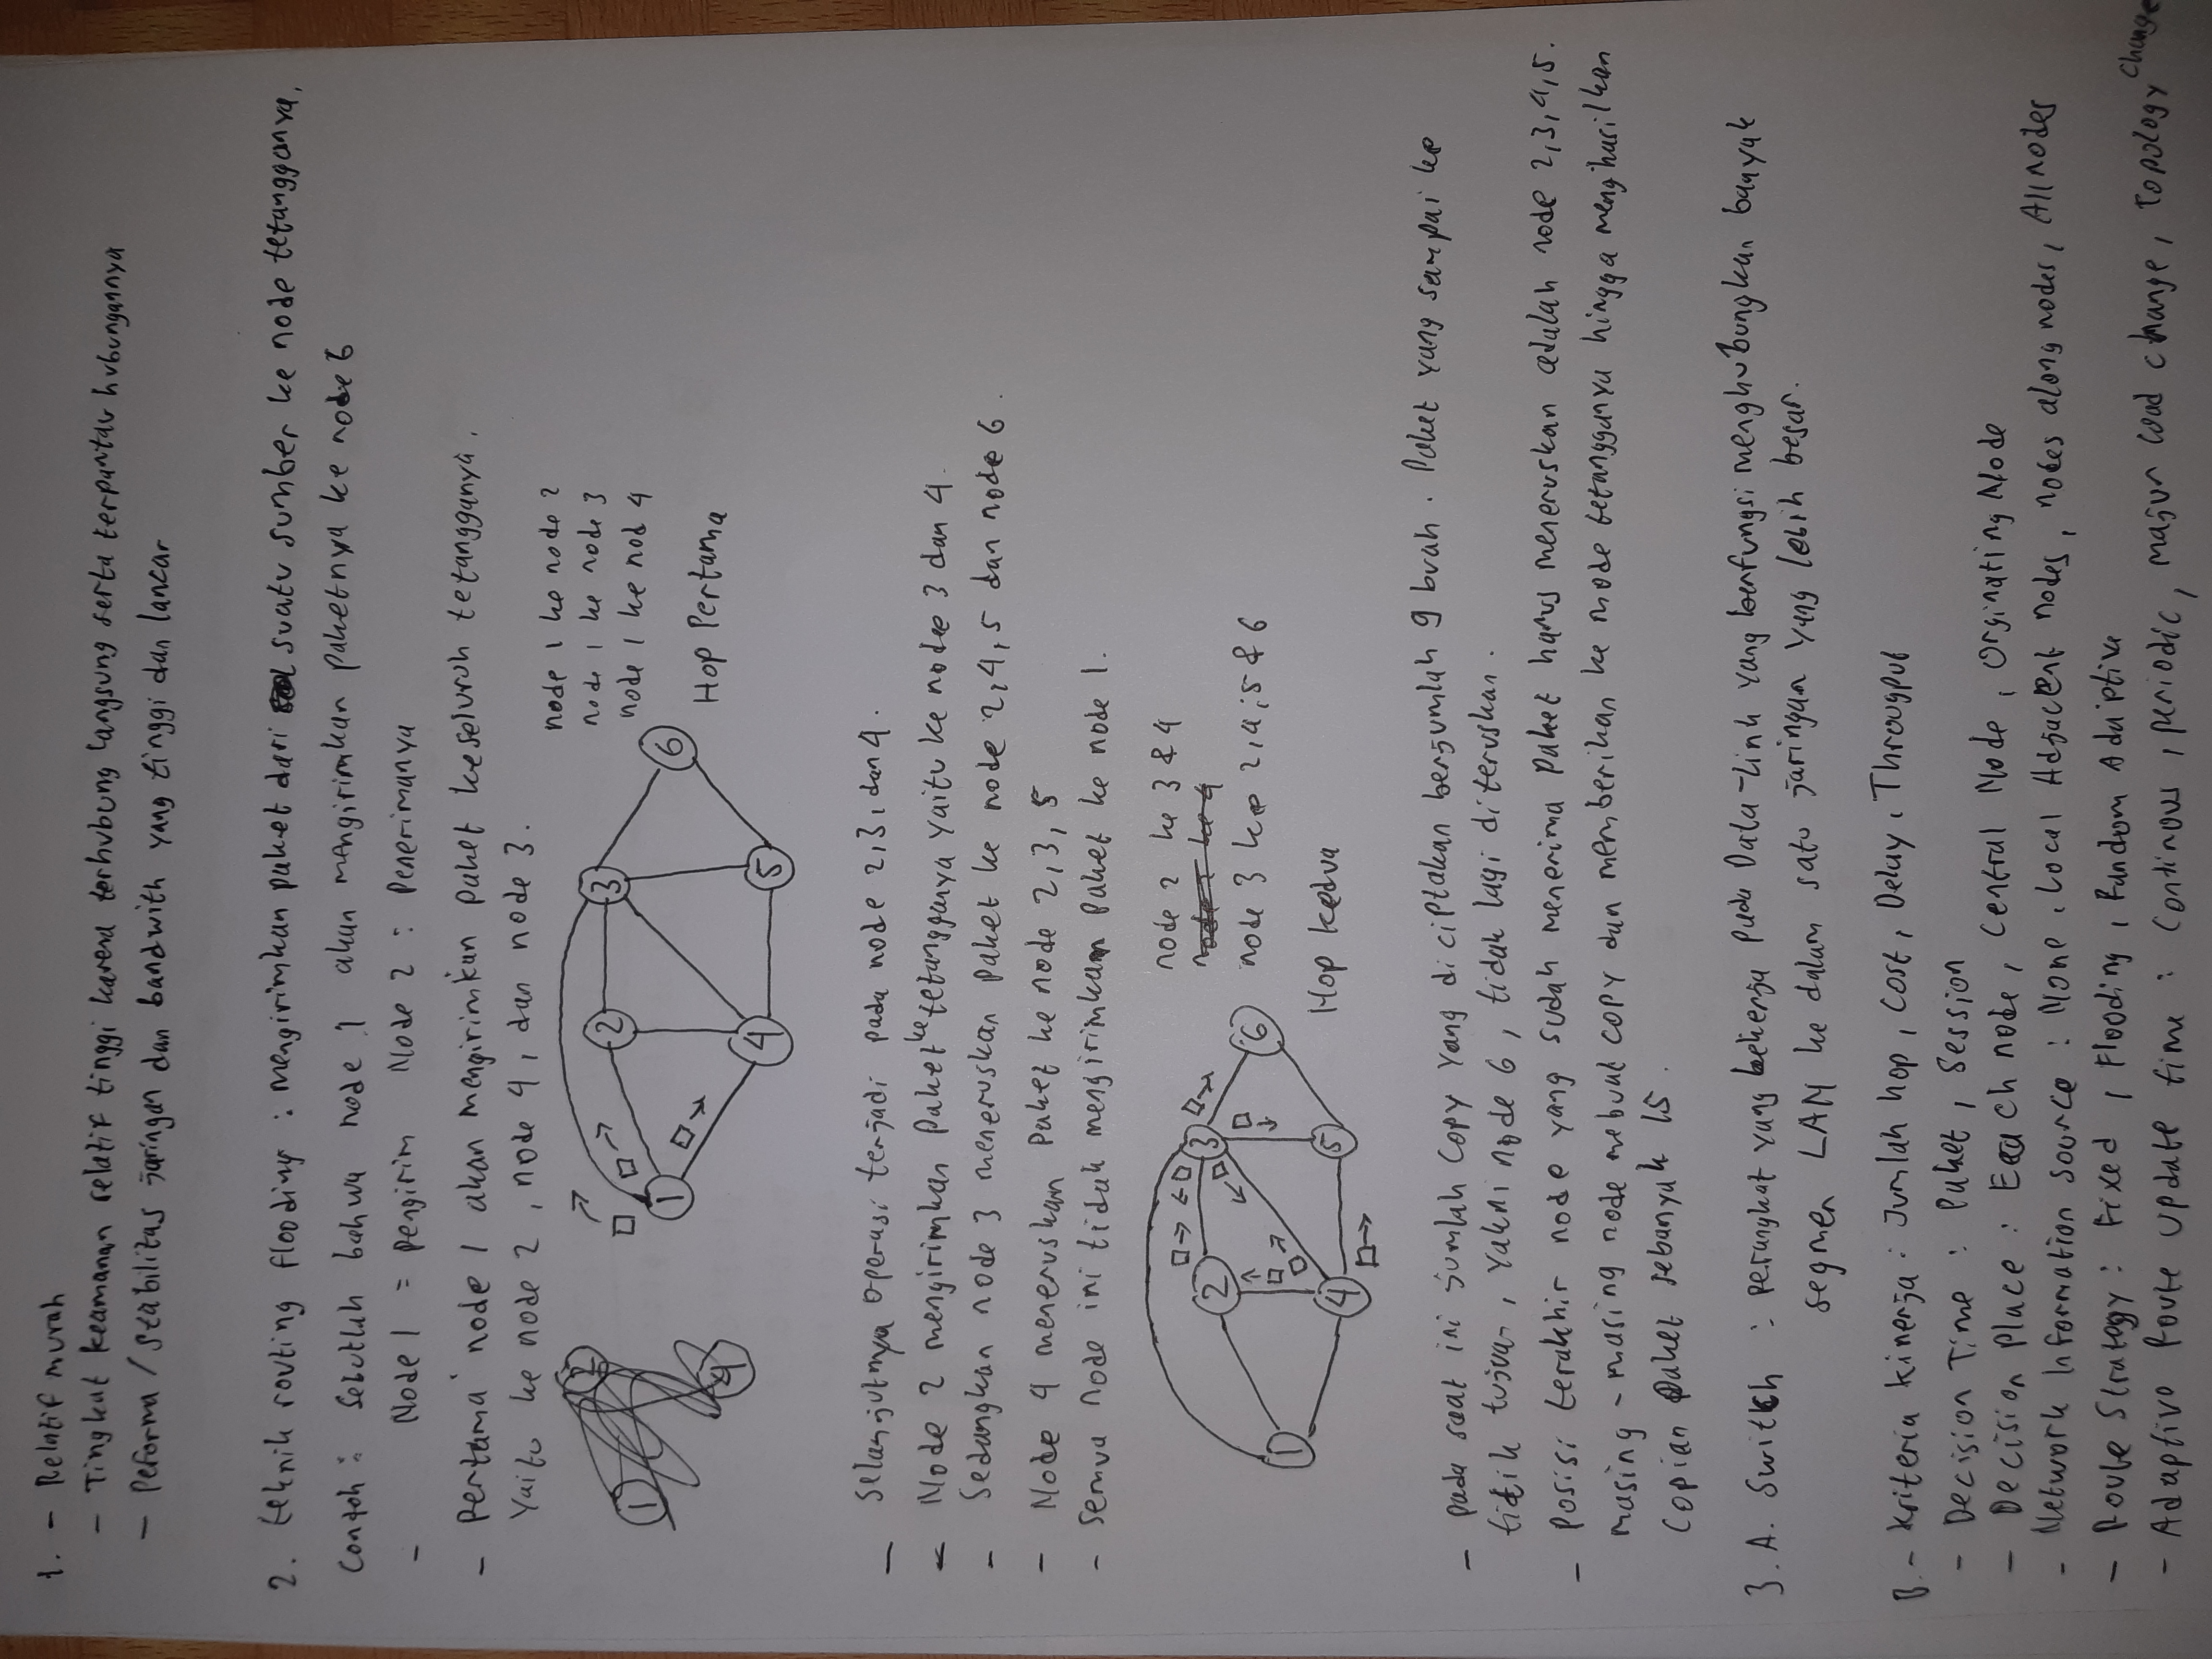 1. - Relatif murah
- Tingkat keamanan relatif tinggi karena terhubung langsung serta terpantau hubungannya
- Peforma / Stabilitas jaringan dan bandwith yang tinggi dan lancar
2. teknik routing flooding : mengirimkan paket dari suatu sumber ke node tetangganya.
Contoh : Sebutlah bahwa node 1 akan mengirimkan paketnya ke node 6
- Node 1 = pengirim Node 2 : Penerimanya
- Pertama node 1 akan mengirimkan paket keseluruh tetangganya.
Yaitu ke node 2, node 4, dan node 3.
1 2 4
1 2 3 4 5 6
node 1 ke node 2
node 1 ke node 3
node 1 ke nod 4
Hop Pertama
- Selanjutnya operasi terjadi pada node 2,3, dan 4.
- Node 2 mengirimkan Paket ke tetangganya yaitu ke nodee 3 dan 4.
- Sedangkan node 3 meneruskan Paket ke node 2,4,5 dan node 6.
- Node 4 meneruskan Paket ke node 2,3,5
- Semua node ini tidak mengirimkan Paket ke node 1.
1 2 3 4 5 6
node 2 ke 3 & 4
node 2 ke 4
node 3 ke 2,4,5 & 6
Hop kedua
- pada saat ini jumlah copy yang diciptakan berjumlah 9 buah. Paket yang sampai ke
titik tujuan, yakni node 6, tidak lagi diteruskan.
- Posisi terakhir node yang sudah menerima Paket harus meneruskan adalah node 2,3,4,5.
masing - masing node mebuat copy dan memberikan ke node tetangganya hingga menghasilkan
Copian Paket sebanyak 15.
3. A. Switch : Perangkat yang bekerja pada Data-Link yang berfungsi menghubungkan banyak
segmen LAN ke dalam satu jaringan yang lebih besar.
B. - Kriteria Kinerja : Jumlah hop, Cost, Delay, Througput
- Decision Time : Paket, Session
- Decision Place : Each node, Central Node, Orginating Node
- Network Information source : None, Local Adjacent nodes, nodes along nodes, All nodes
- Route Strategy : Fixed, Flooding, Random Adaptive
- Adaptive Route update time : Continous, periodic, majur load change, topology change